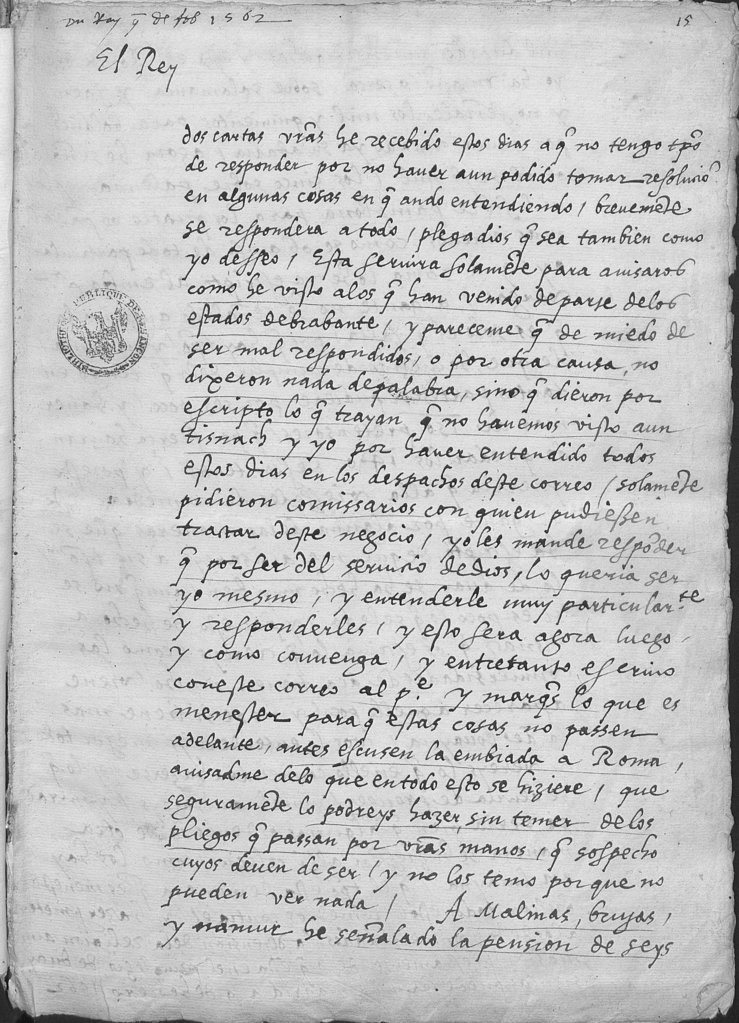 Du Roy q de feb 1562
15
El Rey
dos cartas vr̃as he recebido estos dias a q̃ no tengo tp̃o
de responder por no haver aun podido tomar resoluciõ
en algunas cosas en q̃ ando entendiendo / brevemẽte
se respondera a todo / plega dios q̃ sea tambien como
yo desseo / Esta servira solamẽte para avisaros
como he visto a los q̃ han venido de parte delos
estados de brabante / y pareceme q̃ de miedo de
ser mal respondidos, o por otra causa, no
dixeron nada de palabra, sino q̃ dieron por
escripto lo q̃ trayan q̃ no havemos visto aun
tisnach y yo por haver entendido todos
estos dias en los despachos deste correo / solamẽte
pidieron comissarios con quien pudiessen
tractar deste negocio / yo les mande respõder
q̃ por ser del servicio de dios, lo queria ser
yo mesmo / y entenderle muy particular.te
y responderles / y esto sera agora luego
y como convenga / y entretanto escrivo
con este correo al p.e y marq̃s lo que es
menester para q̃ estas cosas no passen
adelante, antes escusen la embiada a Roma,
avisadme delo que en todo esto se hiziere / que
seguramẽte lo podreys hazer, sin temer de los
pliegos q̃ passan por vr̃as manos, q̃ sospecho
cuyos deven de ser / y no los temo por que no
pueden ver nada / A Malinas, brujas,
y namur he señalado la pension de seys